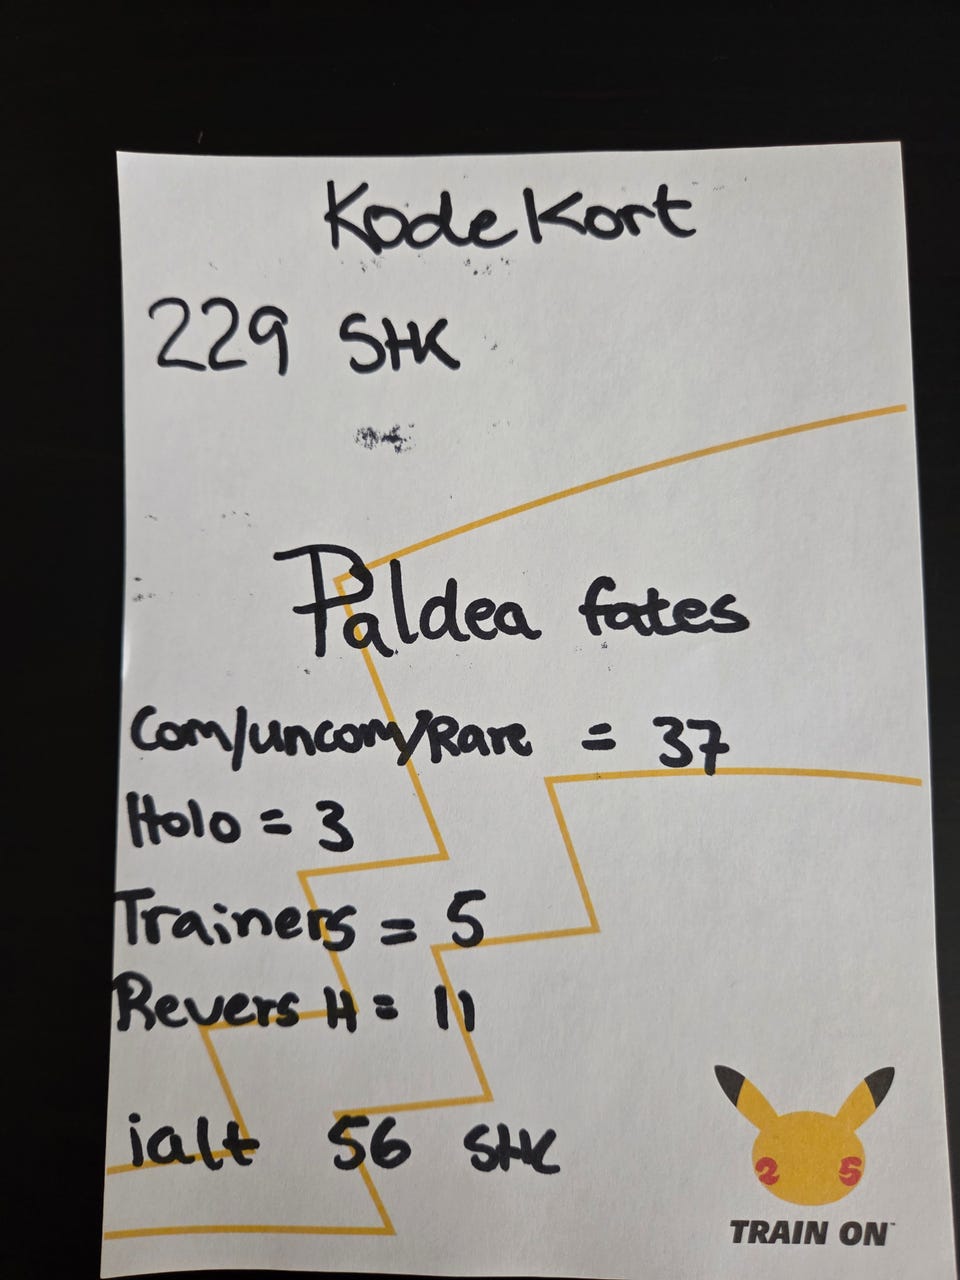 KodeKort
229 Stk
Paldea fates
Com/uncom/Rare = 37
Holo = 3
Trainers = 5
Revers H = 11
ialt 56 Stk
2 5
TRAIN ON™